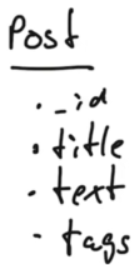 Post
· _id
· title
· text
- tags